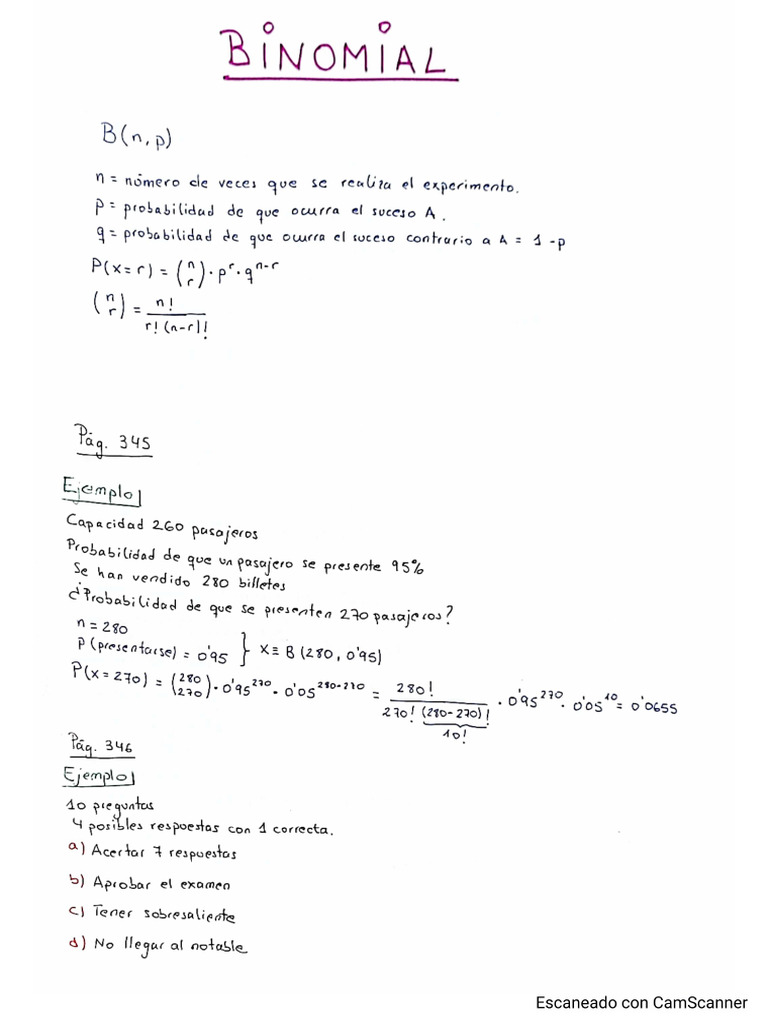 BINOMIAL
B(n,p)
n = número de veces que se realiza el experimento.
p = probabilidad de que ocurra el suceso A.
q = probabilidad de que ocurra el suceso contrario a A = 1 - p
P(x=r) = (n r) · p^r · q^n-r
(n r) = n! / r! (n-r)!
Pág. 345
Ejemplo
Capacidad 260 pasajeros
Probabilidad de que un pasajero se presente 95%
Se han vendido 280 billetes
¿Probabilidad de que se presenten 270 pasajeros?
n = 280
P (presentarse) = 0'95 } x ≡ B (280, 0'95)
P(x = 270) = (280 270) · 0'95^270 · 0'05^280-270 = 280! / 270! (280-270)! · 0'95^270 · 0'05^10 = 0'0655
10!
Pág. 346
Ejemplo
10 preguntas
4 posibles respuestas con 1 correcta.
a) Acertar 7 respuestas
b) Aprobar el examen
c) Tener sobresaliente
d) No llegar al notable
Escaneado con CamScanner